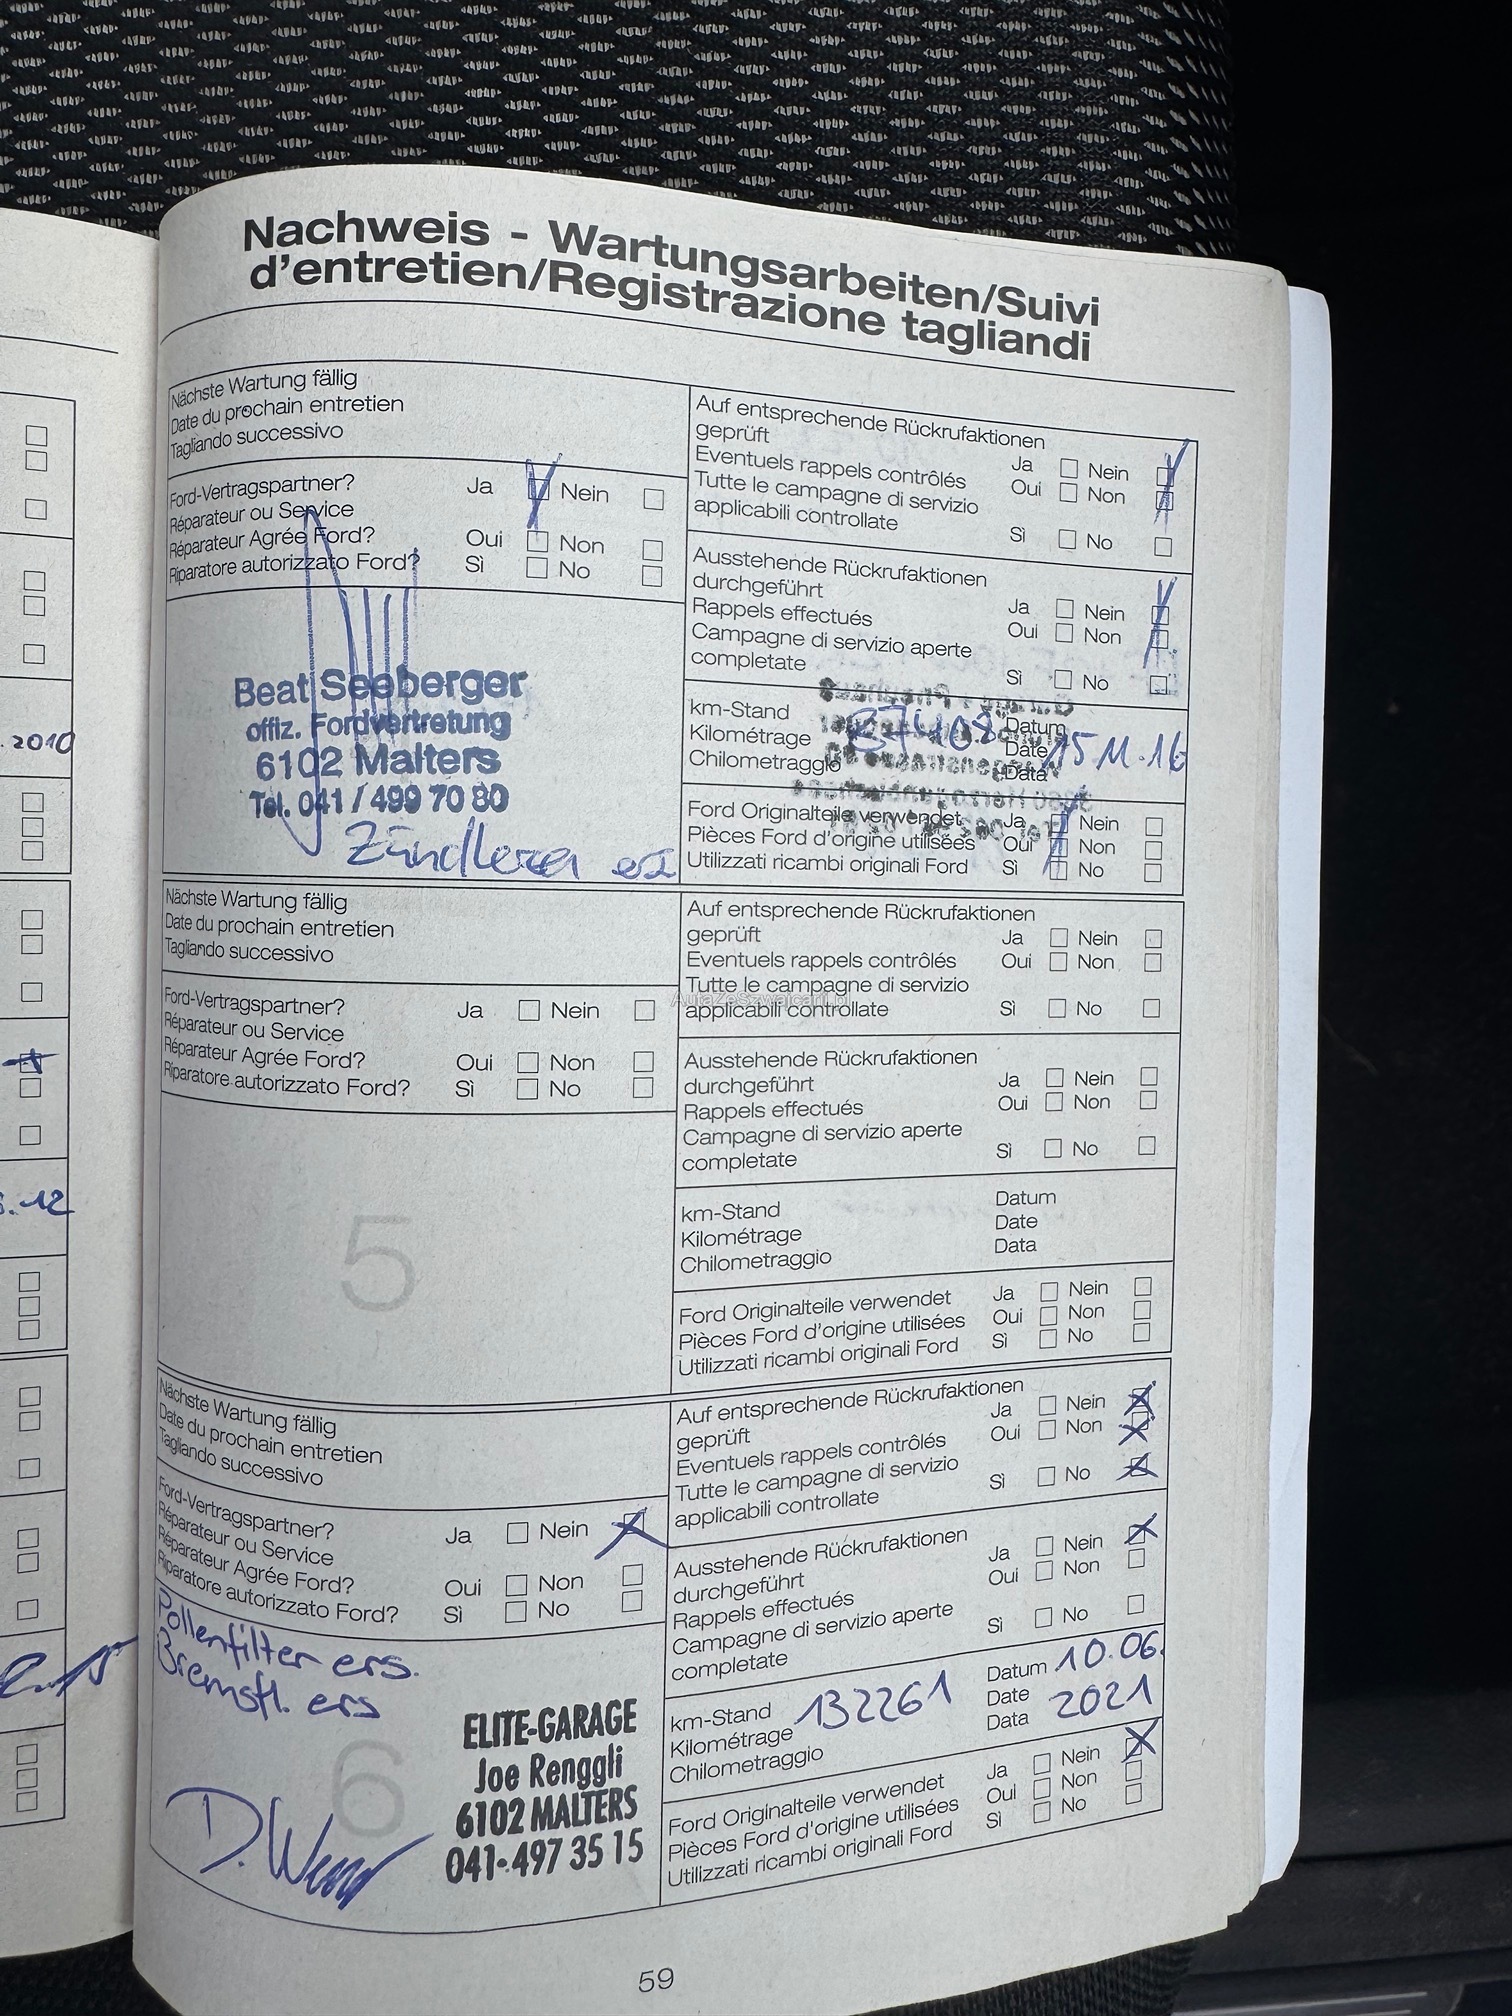 Nachweis - Wartungsarbeiten/Suivi
d'entretien/Registrazione tagliandi
. 2010
.12
Nächste Wartung fällig
Date du prochain entretien
Tagliando successivo
Ford-Vertragspartner?
Réparateur ou Service
Réparateur Agrée Ford?
Riparatore autorizzato Ford?
Ja Nein
Oui Non
Sì No
Beat Seeberger
offiz. Fordvertretung
6102 Malters
Tel. 041 / 499 70 80
Auf entsprechende Rückrufaktionen
geprüft
Eventuels rappels contrôlés
Tutte le campagne di servizio
applicabili controllate
Ja Nein
Oui Non
Sì No
Ausstehende Rückrufaktionen
durchgeführt
Rappels effectués
Campagne di servizio aperte
completate
Ja Nein
Oui Non
Sì No
km-Stand
Kilométrage
Chilometraggio
Datum
Date
Data
15.11.16
Ford Originalteile verwendet
Pièces Ford d'origine utilisées
Utilizzati ricambi originali Ford
Ja Nein
Oui Non
Sì No
Nächste Wartung fällig
Date du prochain entretien
Tagliando successivo
Ford-Vertragspartner?
Réparateur ou Service
Réparateur Agrée Ford?
Riparatore autorizzato Ford?
Ja Nein
Oui Non
Sì No
5
Auf entsprechende Rückrufaktionen
geprüft
Eventuels rappels contrôlés
Tutte le campagne di servizio
applicabili controllate
Ja Nein
Oui Non
Sì No
AutaZeSzwajcarii.pl
Ausstehende Rückrufaktionen
durchgeführt
Rappels effectués
Campagne di servizio aperte
completate
Ja Nein
Oui Non
Sì No
km-Stand
Kilométrage
Chilometraggio
Datum
Date
Data
Ford Originalteile verwendet
Pièces Ford d'origine utilisées
Utilizzati ricambi originali Ford
Ja Nein
Oui Non
Sì No
Nächste Wartung fällig
Date du prochain entretien
Tagliando successivo
Ford-Vertragspartner?
Réparateur ou Service
Réparateur Agrée Ford?
Riparatore autorizzato Ford?
Ja Nein
Oui Non
Sì No
Pollenfilter ers.
Bremsfl. ers
6
ELITE-GARAGE
Joe Renggli
6102 MALTERS
041-497 35 15
Auf entsprechende Rückrufaktionen
geprüft
Eventuels rappels contrôlés
Tutte le campagne di servizio
applicabili controllate
Ja Nein
Oui Non
Sì No
Ausstehende Rückrufaktionen
durchgeführt
Rappels effectués
Campagne di servizio aperte
completate
Ja Nein
Oui Non
Sì No
km-Stand
Kilométrage
Chilometraggio
132261
Datum 10.06.
Date 2021
Data
Ford Originalteile verwendet
Pièces Ford d'origine utilisées
Utilizzati ricambi originali Ford
Ja Nein
Oui Non
Sì No
59